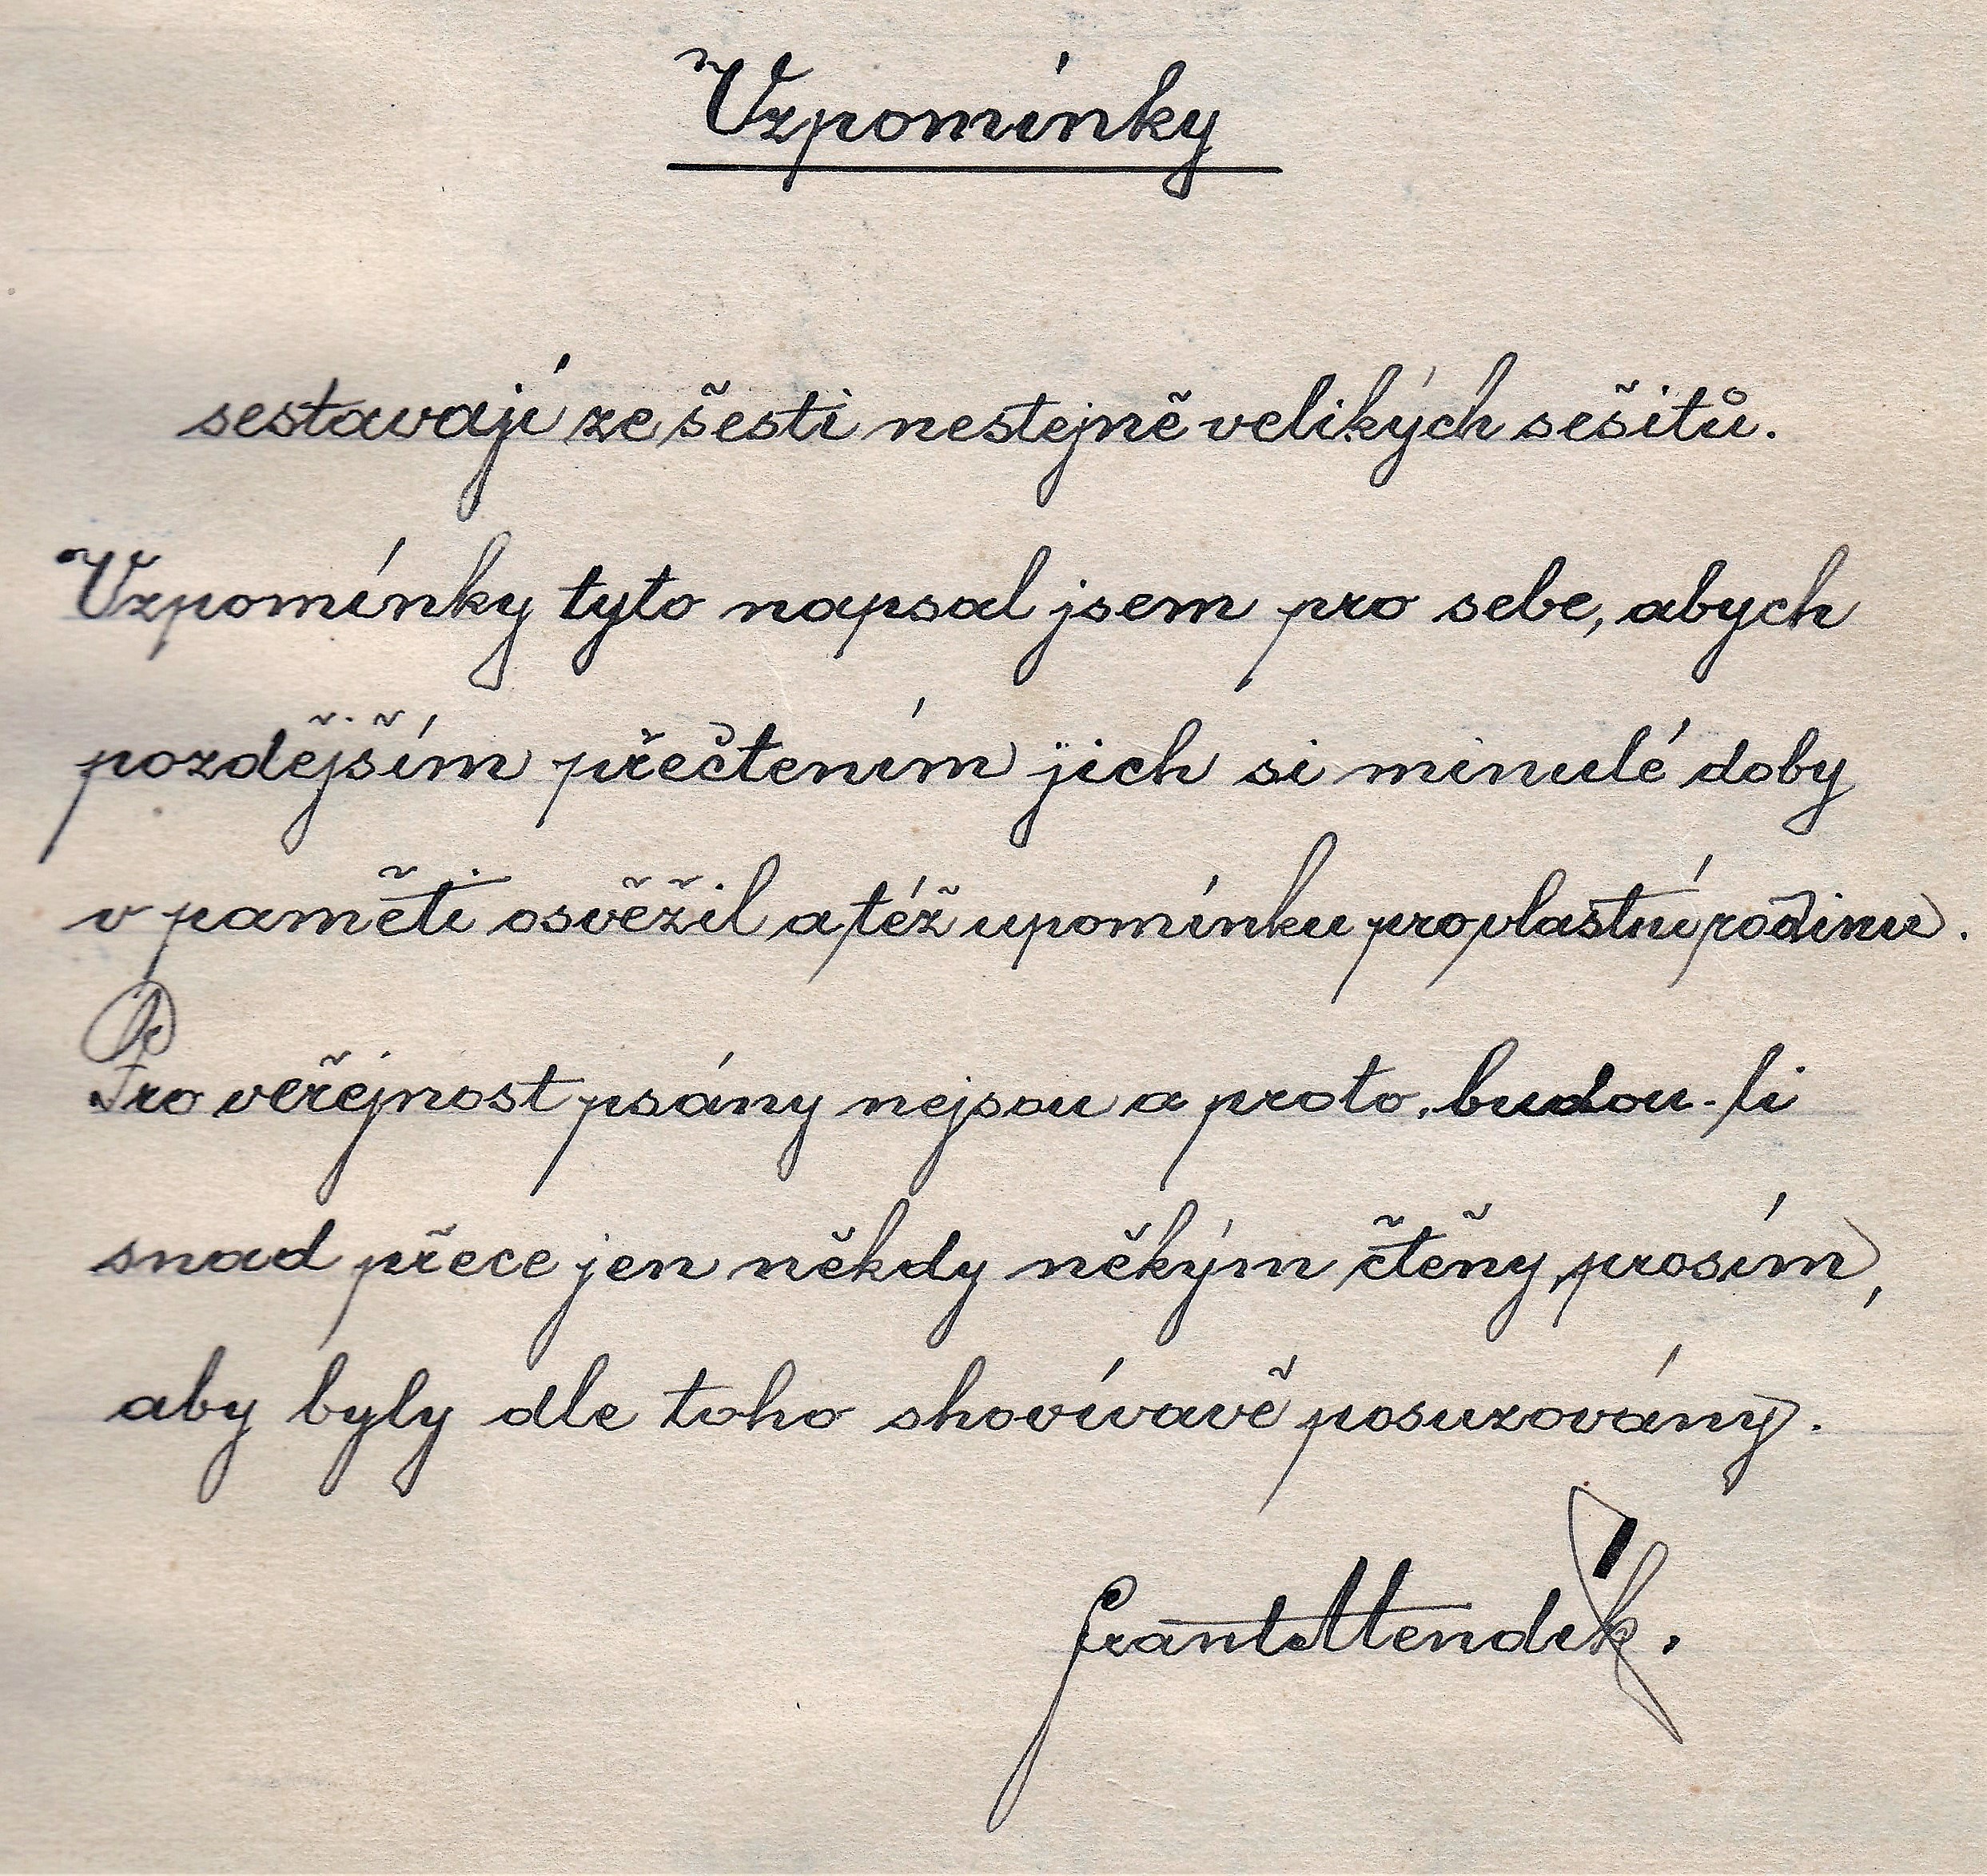 Vzpomínky
sestavají ze šesti nestejně velikých sešitů.
Vzpomínky tyto napsal jsem pro sebe, abych
pozdějším přečtením jich si minulé doby
v paměti osvěžil a též upomínku pro vlastní rodinu.
Pro veřejnost psány nejsou a proto, budou-li
snad přece jen někdy někým čtěny, prosím,
aby byly dle toho shovívavě posuzovány.